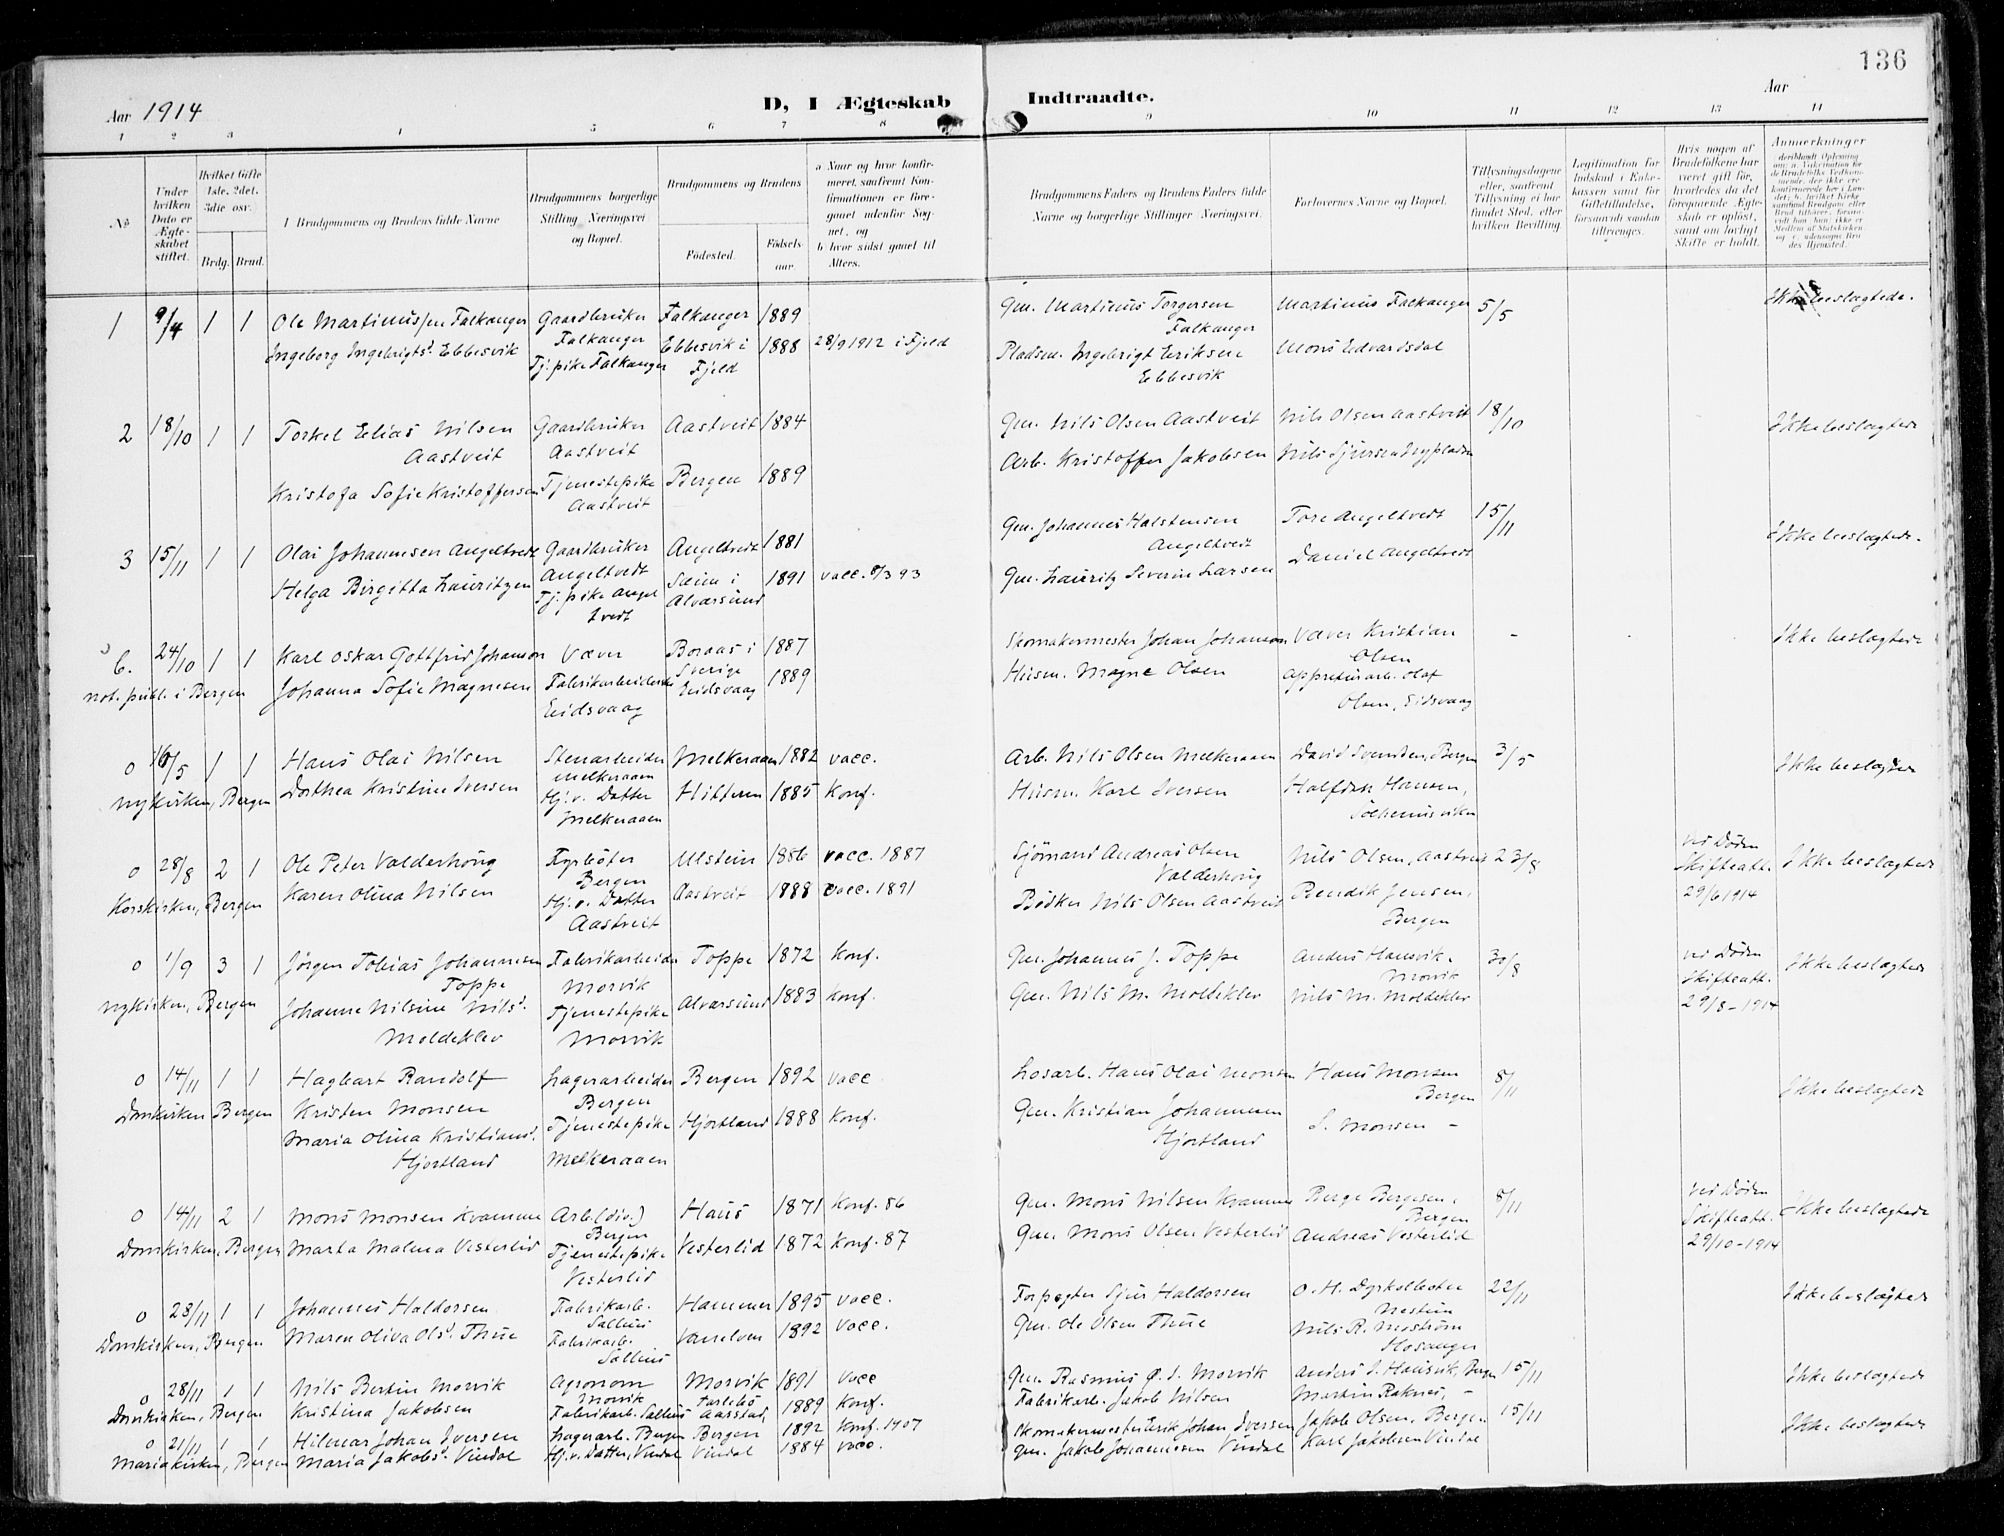 136
Aar 1914
D, I Ægteskab Indtraadte.
Aar
1 2 3 4 5 6 7 8 9 10 11 12 13 14
No
Under hvilken Dato er Ægteskabet stiftet.
Hvilket Gifte 1ste, 2det, 3die osv.
Brdg. Brud.
Brudgommens og Brudens fulde Navne
Brudgommens borgerlige Stilling, Næringsvei og Bopæl.
Brudgommens og Brudens
Födested.
Födselsaar.
a Naar og hvor konfirmeret, saafremt Konfirmationen er foregaaet udenfor Sognet, og
b hvor sidst gaaet til Alters.
Brudgommens Faders og Brudens Faders fulde Navne og borgerlige Stillinger Næringsvei.
Forlovernes Navne og Bopæl.
Tillysningsdagene eller, saafremt Tillysning ei har fundet Sted, efter hvilken Bevilling.
Legitimation for Indskud i Enkekassen samt for Giftetilladelse, forsaavidt saadan tiltrænges.
Hvis nogen af Brudefolkene har været gift för, hvorledes da det foregaaende Ægteskab er oplöst, samt om lovligt Skifte er holdt.
Anmærkninger
1 9/4 1 1 Ole Martinussen Falkanger Gaardbruker Falkanger Falkanger 1889
Gm. Martinus Torgersen Falkanger Martinus Falkanger 5/5 Ikke beslægtede.
Ingeborg Ingebrigtsd. Ebbesvik Tj.pike Falkanger Ebbesvik i Fjeld 1888 28/9 1912 i Fjeld
Pladsm. Ingebrigt Eriksen Ebbesvik Mons Edvardsdal
2 18/10 1 1 Torkel Elias Nilsen Aastveit Gaardbruker Aastveit Aastveit 1884
Gm. Nils Olsen Aastveit Nils Olsen Aastveit 18/10 Ikke beslægtede
Kristofa Sofie Kristoffersen Tjenestepike Aastveit Bergen 1889
Arb. Kristoffer Jakobsen Nils Sjursen
3 15/11 1 1 Olai Johannesen Angeltvedt Gaardbruker Angeltvedt Angeltvedt 1881
Gm. Johannes Halstensen Angeltvedt Tore Angeltvedt 15/11 Ikke beslægtede.
Helga Birgitta Lauritzen Tj.pike Angeltvedt Sæim i Alversund 1891 vacc. 8/3 93
Gm. Lauritz Severin Larsen Daniel Angeltvedt
b. 24/10 1 1 Karl Oskar Gottfrid Johanson Væver Boraas i Sverige 1887
Skomakermester Johan Johanson Væver Kristian Olsen - Ikke beslægtede
not. publ. i Bergen Johanna Sofie Magnesen Fabrikarbeiderske Eidsvaag Eidsvaag 1889
Husm. Magne Olsen Appreturarb. Olaf Olsen, Eidsvaag
o 16/5 1 1 Hans Olai Nilsen Stenarbeider Melkeraaen Melkeraaen 1882 vacc.
Arb. Nils Olsen Melkeraaen David Svendsen, Bergen 3/5 Ikke beslægtede
Nykirken, Bergen Dorthea Kristine Iversen Hj.v. Datter Melkeraaen Hitteren 1885 Konf.
Husm. Karl Iversen Halfdan Hansen, Solheimsviken
o 28/8 2 1 Ole Peter Valderhoug Fyrböter Bergen Ulstein 1856 vacc. 1887
Sjömand Andreas Olsen Valderhoug Nils Olsen, Aastveit 23/8 ved Döden Skifteatt. 29/6 1914 Ikke beslægtede
Korskirken, Bergen Karen Olina Nilsen Hj.v. Datter Aastveit Aastveit 1888 vacc. 1891
Bödker Nils Olsen Aastveit Bendik Jensen, Bergen
o 1/9 3 1 Jörgen Tobias Johannesen Toppe Fabrikarbeider Morvik Toppe 1872 Konf.
Gm. Johannes J. Toppe Anders Hausvik - Morvik 30/8 ved Döden Skifteatt. 29/8-1914 Ikke beslægtede
Nykirken, Bergen Johanne Nilsine Nilsd. Moldeklev Tjenestepike Morvik Alversund 1883 Konf.
Gm. Nils M. Moldeklev Nils M. Moldeklev
o 14/11 1 1 Hagbart Randolf Kristen Monsen Lagerarbeider Bergen Bergen 1892 vacc
Losarb. Hans Olai Monsen Hans Monsen Bergen 8/11 Ikke beslægtede
Domkirken Bergen Maria Olina Kristiansd. Hjortland Tjenestepike Melkeraaen Hjortland 1888 Konf.
Gm. Kristian Johannesen Hjortland S. Monsen -
o 14/11 2 1 Mons Monsen Kvamme Arb. (div.) Bergen Haus 1871 Konf. 86
Gm. Mons Nilsen Kvamme Berge Bergesen, Bergen 8/11 ved Döden Skifteatt. 29/10-1914 Ikke beslægtede
Domkirken, Bergen Marta Malena Vesterlid Tjenestepike Vesterlid Vesterlid 1872 Konf. 87
Gm. Mons Olsen Vesterlid Andreas Vesterlid
o 28/11 1 1 Johannes Haldorsen Fabrikarb. Salhus Hammer 1895 vacc.
Forpagter Sjur Haldorsen O. H. Dyrkolbotn Nestun 22/11 Ikke beslægtede
Domkirken, Bergen Maren Oliva Olsd. Thue Fabrikarb. Salhus 1892 vacc.
Gm. Ole Olsen Thue Nils R. Moström Hosanger
o 28/11 1 1 Nils Bertin Morvik Agronom Morvik Morvik 1891 vacc
Gm. Rasmus O. J. Morvik Anders J. Hausvik, Bergen 15/11 Ikke beslægtede
Domkirken, Bergen Kristina Jakobsen Fabrikarb. Salhus Aasstad, 1889 Konf.
Fabrikarb. Jakob Nilsen Martin Raknes, -
o 21/11 1 1 Hilmar Johan Iversen Lagerarb. Bergen Bergen 1892 Konf. 1907
Skomakermester Erik Johan Iversen Jakob Olsen, Bergen 15/11 Ikke beslægtede
Mariakirken, Bergen Maria Jakobsd. Vindal Hj.v. Datter, Vindal Vindal 1884 vacc.
Gm. Jakob Johannesen Vindal Karl Jakobsen Vindal